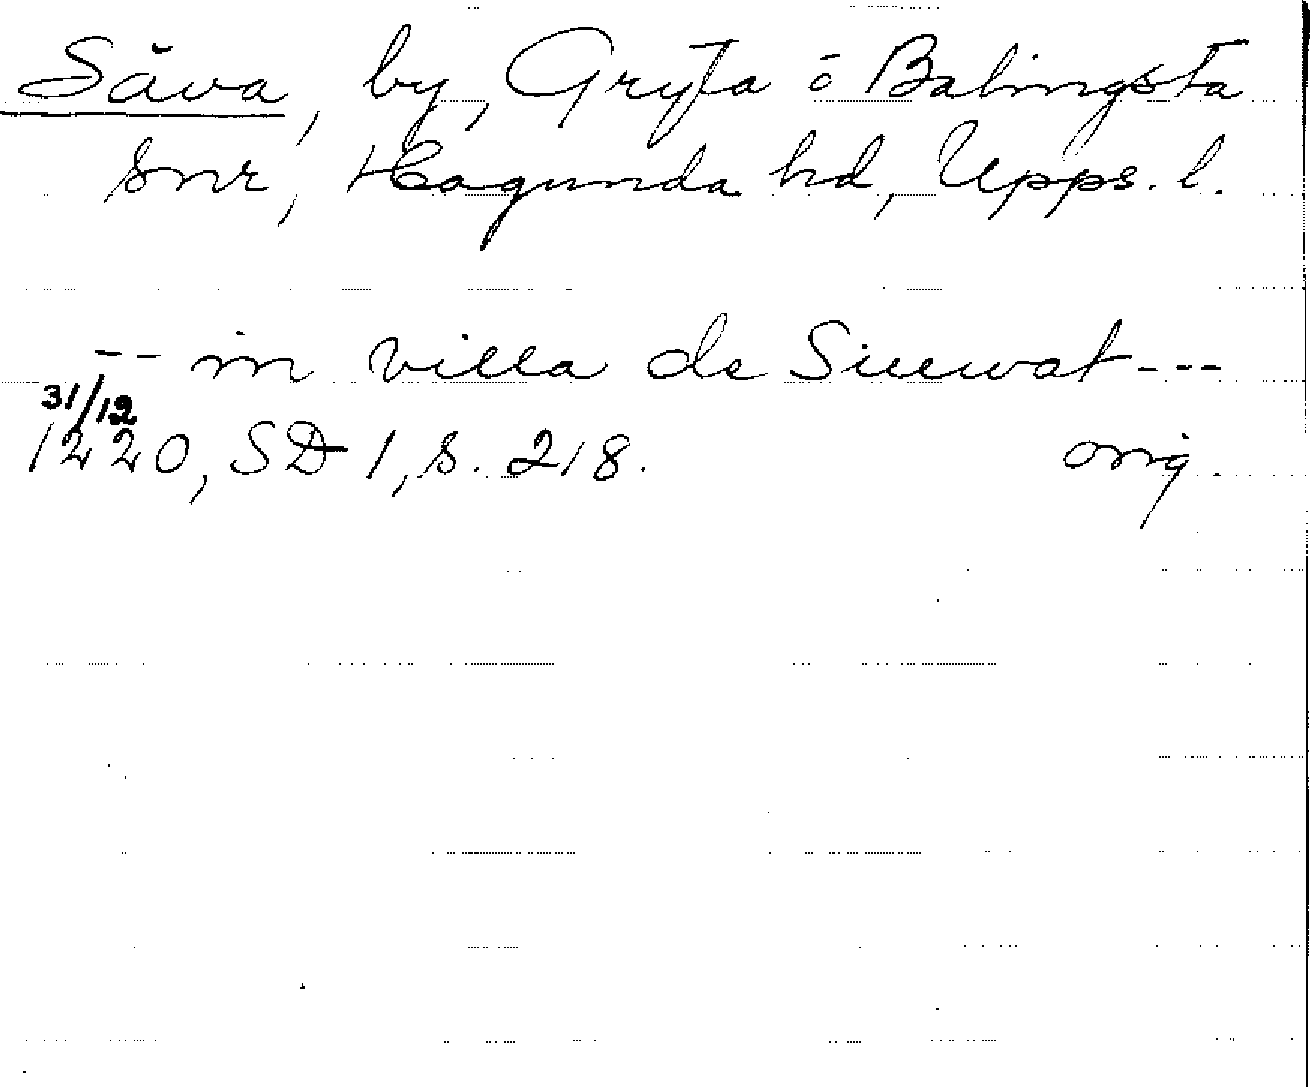 Säva, by, Gryta o Balingsta
snr, Hagunda hd, Upps. l.
-- in villa de Siuewat ---
31/12
1220, SD 1, s. 218. orig.